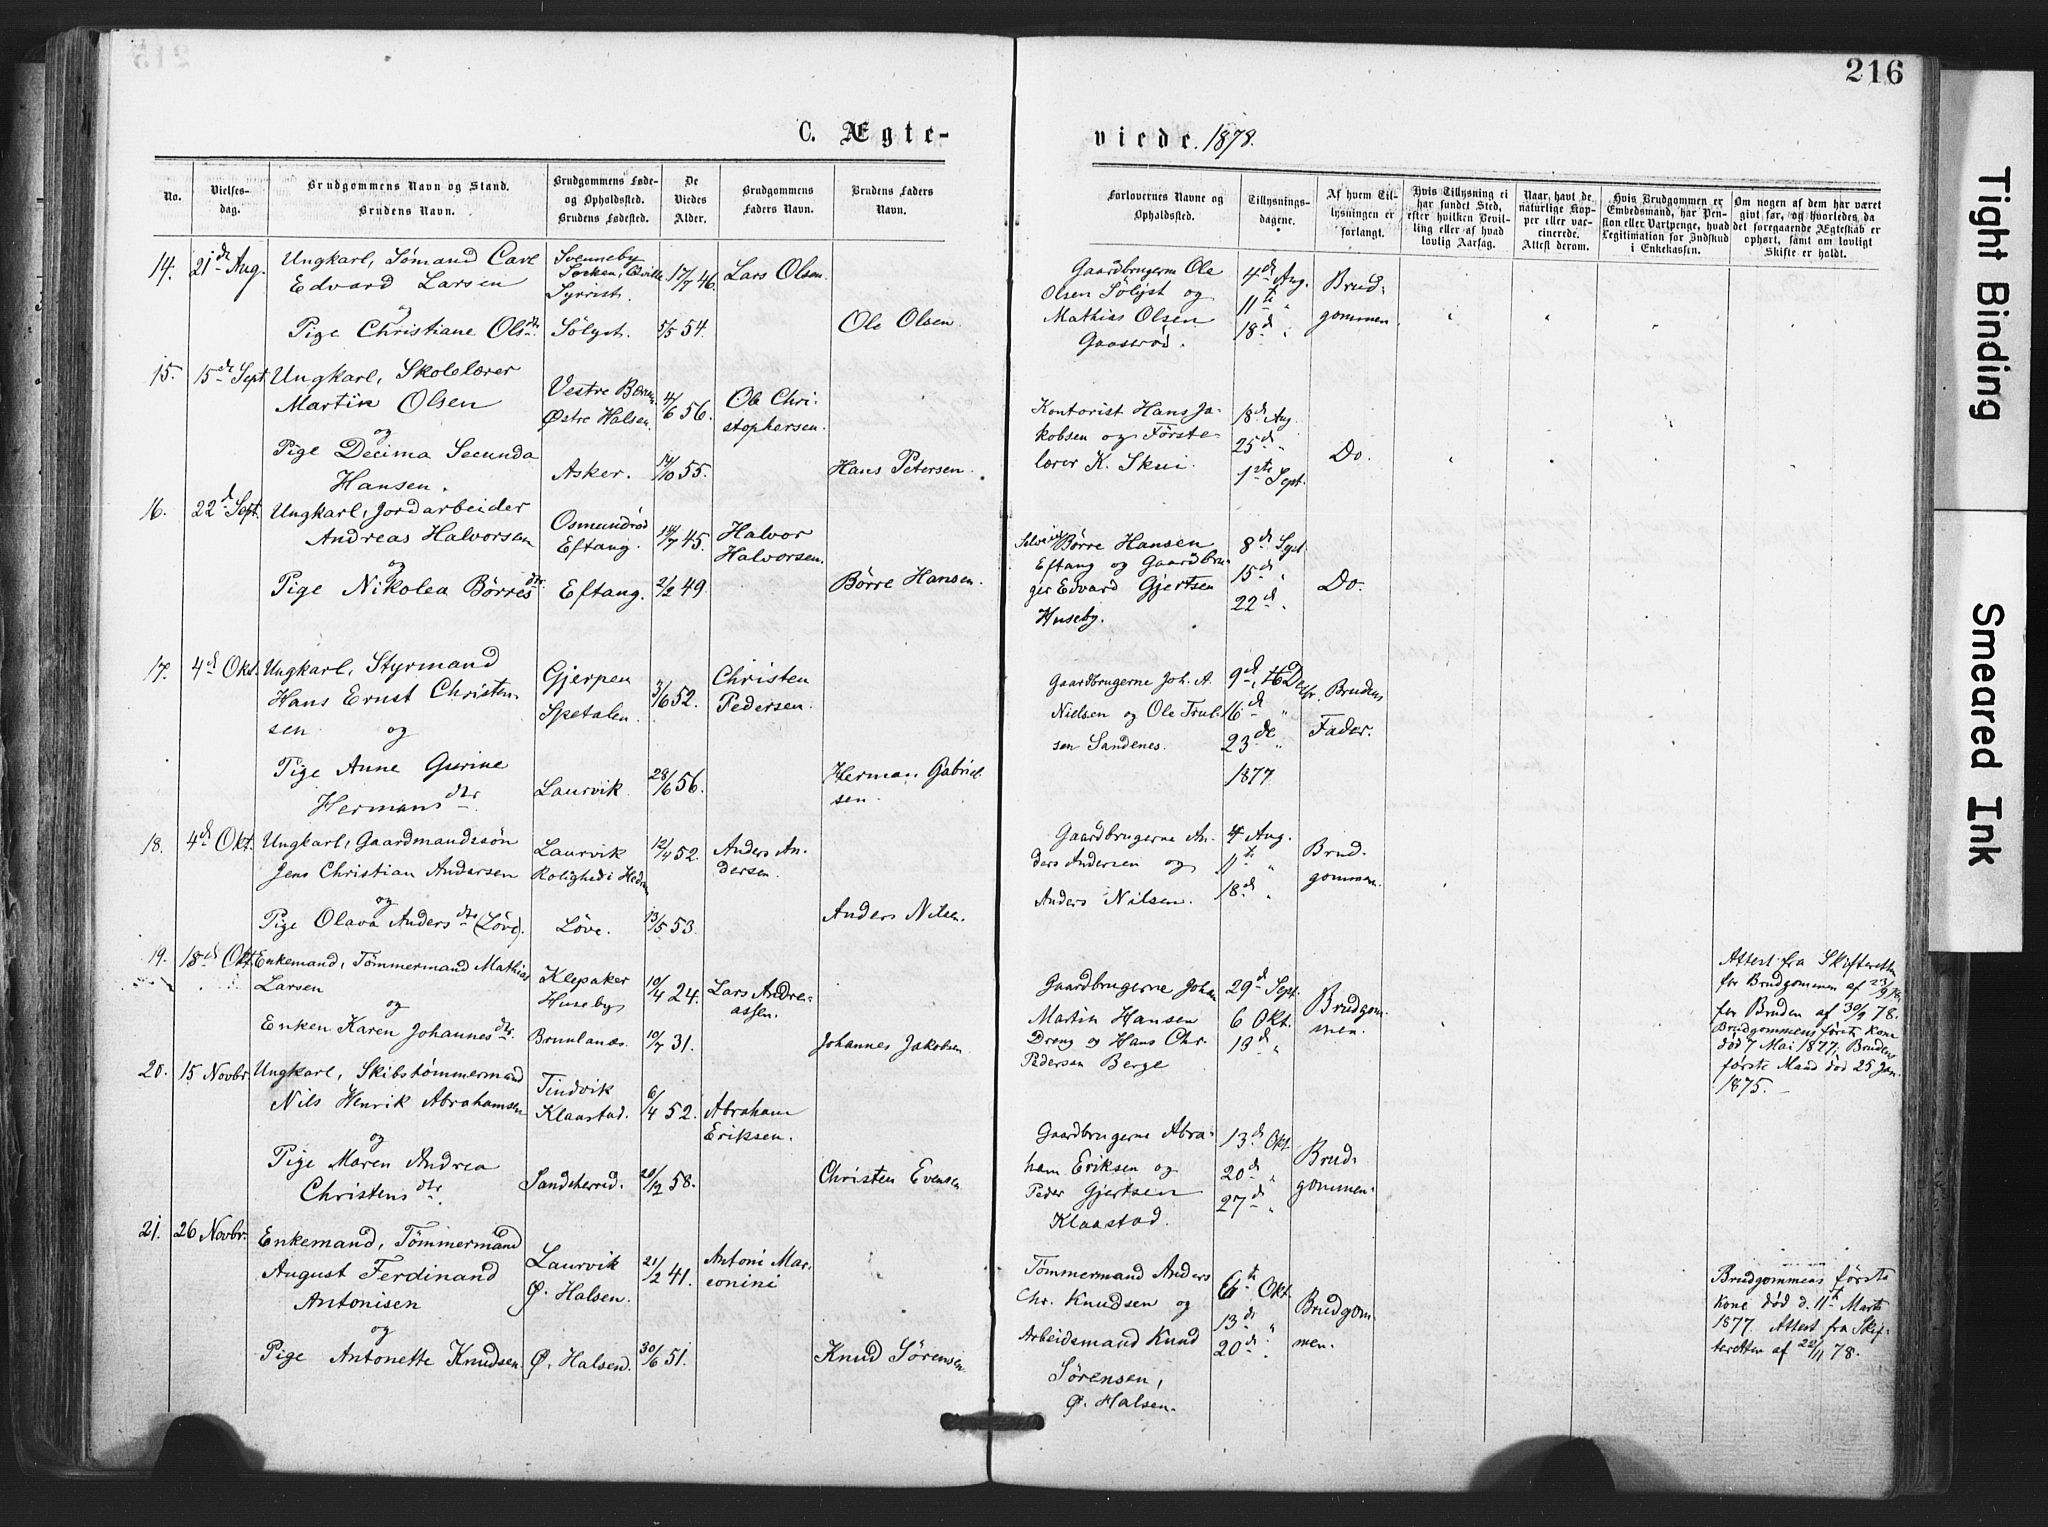 216
C. Ægte-
viede. 1878.
No.
Vielses-
dag.
Brudgommens Navn og Stand.
Brudens Navn.
Brudgommens Føde-
og Opholdssted.
Brudens Fødested.
De
Viedes
Alder.
Brudgommens
Faders Navn.
Brudens Faders
Navn.
Forlovernes Navne og
Opholdssted.
Tillysnings-
dagene.
Af hvem Til-
lysningen er
forlangt.
Hvis Tillysning ei
har fundet Sted,
efter hvilken Bevil-
ling eller af hvad
lovlig Aarsag.
Naar havt de
naturlige Kop-
per eller vac-
cinerede.
Attest derom.
Hvis Brudgommen er
Embedsmand, har Pen-
sion eller Vartpenge, hvad
Legitimation for Indskud
i Enkekassen.
Om nogen af dem har været
gift før, og hvorledes da
det foregaaende Ægteskab er
ophørt, samt om lovligt
Skifte er holdt.
14. 21de Aug. Ungkarl, Sømand Carl
Edvard Larsen
og
Pige Christiane Olsdtr
Svenneby
Sølyst.
17/7 46.
5/5 54.
Lars Olsen.
Ole Olsen.
Gaardbrugerne Ole
Olsen Sølyst og
Mathias Olsen
Gaasrød.
4de Aug.
11te "
18de "
Brud-
gommen.
15. 15de Sept. Ungkarl, Skolelærer
Martin Olsen
og
Pige Decima Secunda
Hansen.
Vestre
Østre Halsen.
Asker.
4/6 56.
14/10 55.
Ole Chri-
stophersen.
Hans Petersen.
Kontorist Hans Ja-
kobsen og Første-
lærer K. Skui.
18de Aug.
25de "
1ste Sept.
Do.
16. 22de Sept. Ungkarl, Jordarbeider
Andreas Halvorsen
og
Pige Nikolea Børresdtr.
Osmundrød
Eftang.
Eftang.
14/7 45.
2/2 49.
Halvor
Halvorsen.
Børre Hansen.
Selveier Børre Hansen
Eftang og Gaardbru-
ger Edvard Gjertsen
Huseby.
8de Sept
15de "
22de "
Do.
17. 4de Okt. Ungkarl, Styrmand
Hans Ernst Christen-
sen og
Pige Anne Gurine
Hermansdtr.
Gjerpen
Spetalen.
Laurvik.
3/6 52.
28/6 56.
Christen
Pedersen.
Herman Gabriel-
sen.
Gaardbrugerne Joh. A.
Nielsen og Ole Truls-
sen Sandenes.
9de, Decbr.
16de "
23de "
1877
Brudens
Fader.
18. 4de Okt. Ungkarl, Gaardmandssøn
Jens Christian Andersen
og
Pige Olava Andersdtr (Løve).
Laurvik
Rolighed i Hedrum
Løve.
12/4 52.
13/5 53.
Anders An-
dersen.
Anders Nilsen.
Gaardbrugerne An-
ders Andersen og
Anders Nilsen.
4 Aug.
11te "
18de "
Brud-
gommen.
19. 18de Okt. Enkemand, Tømmermand Mathias
Larsen
og
Enken Karen Johannesdtr.
Klepaker
Huseby
Brunlanæs.
10/4 24.
10/7 31.
Lars Andre-
assen.
Johannes Jakobsen.
Gaardbrugerne Johan
Martin Hansen
Dreng og Hans Chr.
Pedersen Berge
29de Sept.
6 Okt.
13de "
Brudgom-
men.
Attest fra Skifteretten
for Brudgommen af 23/9
for Bruden af 30/9 78.
Brudgommens første Kone
død 7 Mai 1877, Brudens
første Mand død 25 Jan.
1875.
20. 15 Novbr. Ungkarl, Skibstømmermand
Nils Henrik Abrahamsen
og
Pige Maren Andrea
Christensdtr.
Tindvik
Klaastad.
Sandeherred.
6/4 52.
20/12 58.
Abraham
Eriksen.
Christen Evensen
Gaardbrugerne Abra-
ham Eriksen og
Peder Gjertsen
Klaastad.
13de Okt
20de "
27de "
Brud-
gommen.
21. 26 Novbr. Enkemand, Tømmermand
August Ferdinand
Antonisen
og
Pige Antonette Knudsen.
Laurvik
Ø. Halsen.
Ø. Halsen.
21/2 41.
30/6 51.
Antoni Mar-
conini
Knud Sørensen
Tømmermand Anders
Chr. Knudsen og
Arbeidsmand Knud
Sørensen,
Ø. Halsen.
6te Okt
13de "
20de "
Brudgom-
men.
Brudgommens første
Kone død d. 11te Marts
1877. Attest fra Skif-
teretten af 22/11 78.
Tight Binding
Smeared Ink